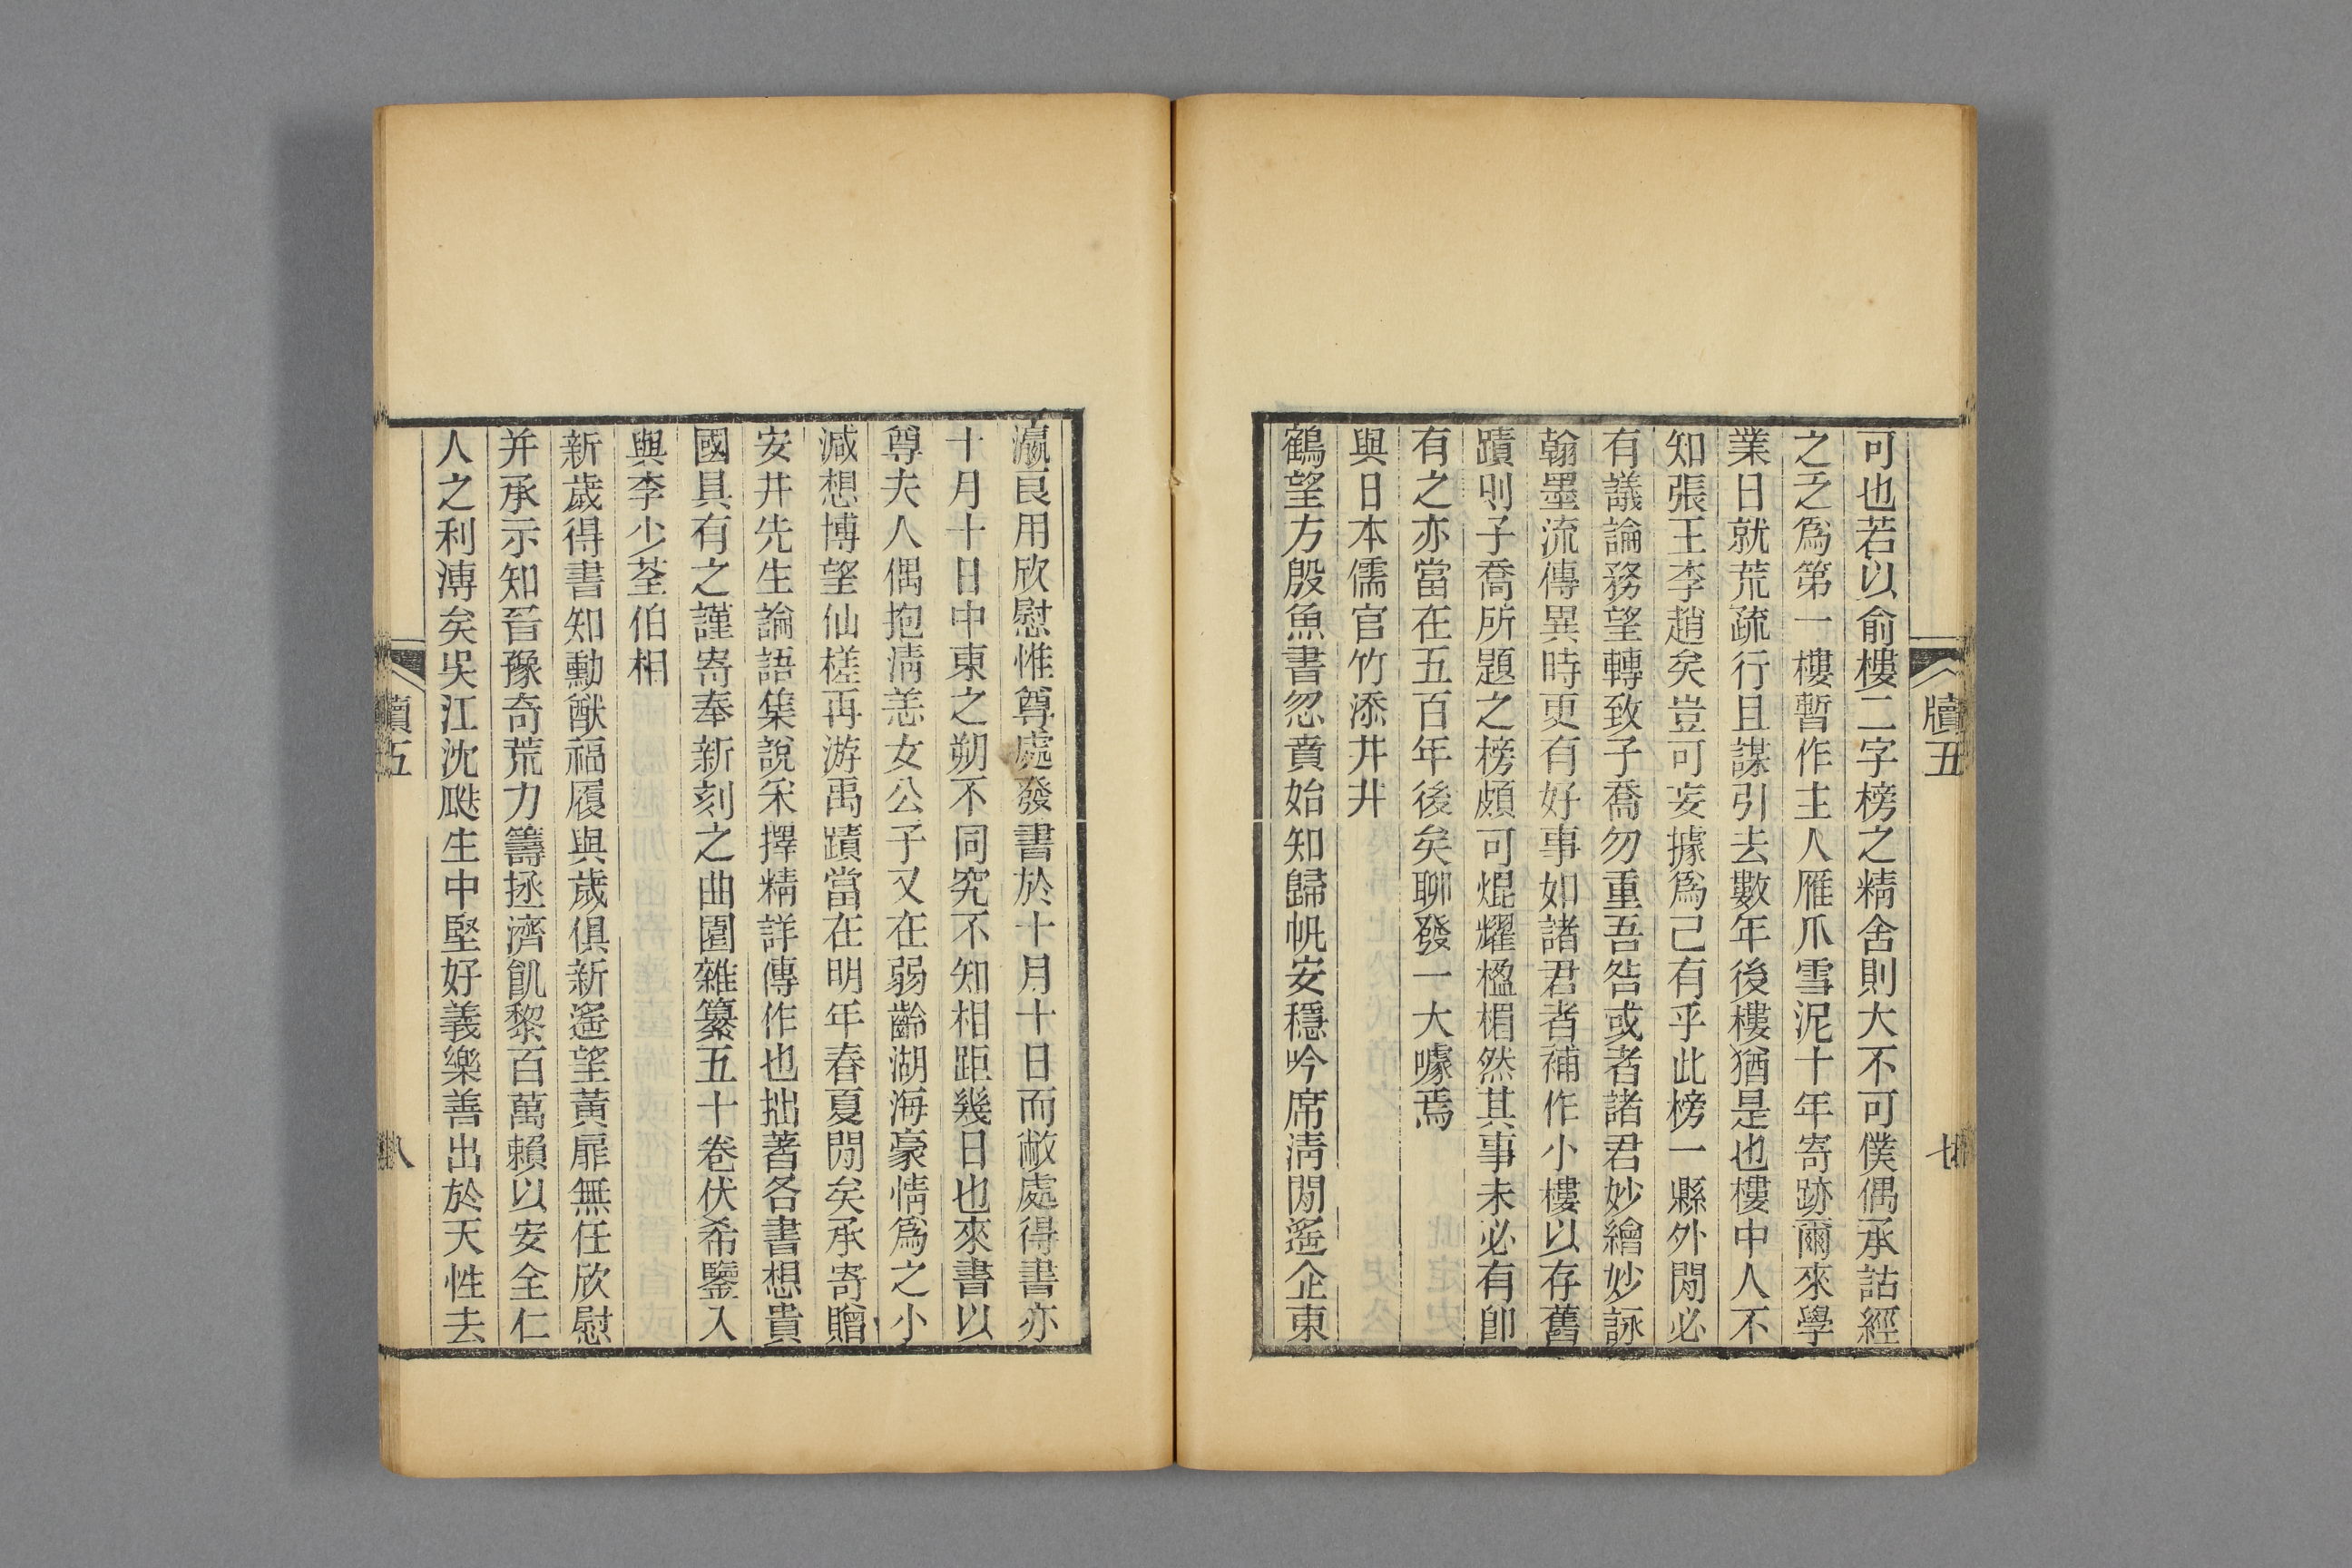 可也若以俞樓二字榜之精舍則大不可僕偶承詁經
之乏爲第一樓暫作主人雁爪雪泥十年寄跡爾來學
業日就荒疏行且謀引去數年後樓猶是也樓中人不
知張王李趙矣豈可妄據爲己有乎此榜一縣外閒必
有議論務望轉致子喬勿重吾咎或者諸君妙繪妙詠
翰墨流傳異時更有好事如諸君者補作小樓以存舊
蹟則子喬所題之榜頗可焜耀楹楣然其事未必有卽
有之亦當在五百年後矣聊發一大噱焉
與日本儒官竹添井井
鶴望方殷魚書忽賁始知歸帆安穩吟席淸閒遙企東
牘五
七
瀛良用欣慰惟尊處發書於十月十日而敝處得書亦
十月十日中東之朔不同究不知相距幾日也來書以
尊夫人偶抱淸恙女公子又在弱齡湖海豪情爲之小
減想博望仙槎再游禹蹟當在明年春夏閒矣承寄贈
安井先生論語集說采擇精詳傳作也拙著各書想貴
國具有之謹寄奉新刻之曲園雜纂五十卷伏希鑒入
與李少荃伯相
新歲得書知勳猷福履與歲俱新遙望黃扉無任欣慰
并承示知晉豫奇荒力籌拯濟飢黎百萬賴以安全仁
人之利溥矣吳江沈颷生中堅好義樂善出於天性去
牘五
八